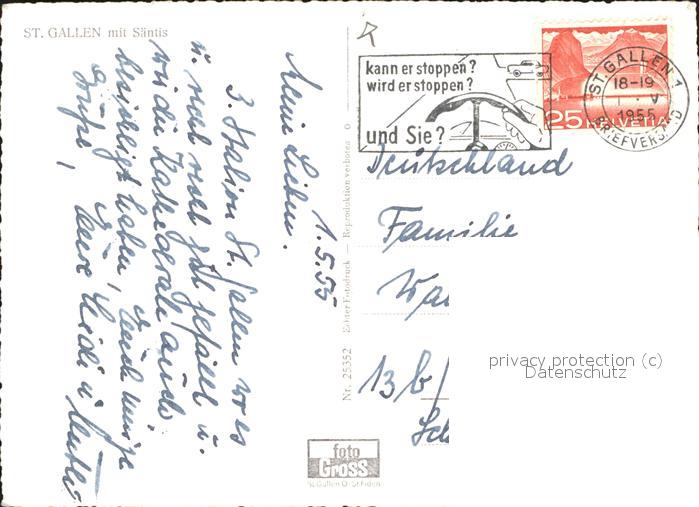 ST. GALLEN mit Säntis
1.5.55
Meine Lieben.
3. Station St. Gallen wo es
u. noch recht gut gefällt u.
wir die Kathedrale auch
besichtigt haben, Euch innige
Grüße, Eure Heidi u Mutti
Nr. 25352 Echter Fotodruck — Reproduktion verboten O
kann er stoppen?
wird er stoppen?
und Sie?
25 HELVETIA
ST. GALLEN 1
18-19
1. V
1955
BRIEFVERSAND
Deutschland
Familie
13b/
foto
GROSS
St. Gallen O - St. Fiden
privacy protection (c)
Datenschutz